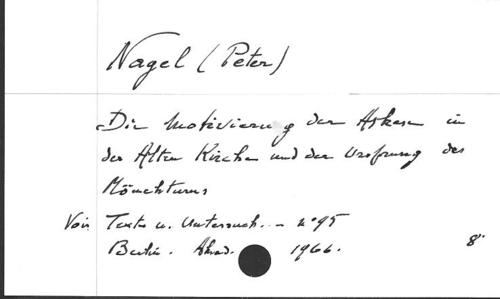 Nagel (Peter)
Die Motivierung der Askese in
der Alten Kirche und der Ursprung des
Mönchtums
Voir Texte u. Untersuch. - n° 95
Berlin. Akad. 1966.
8°